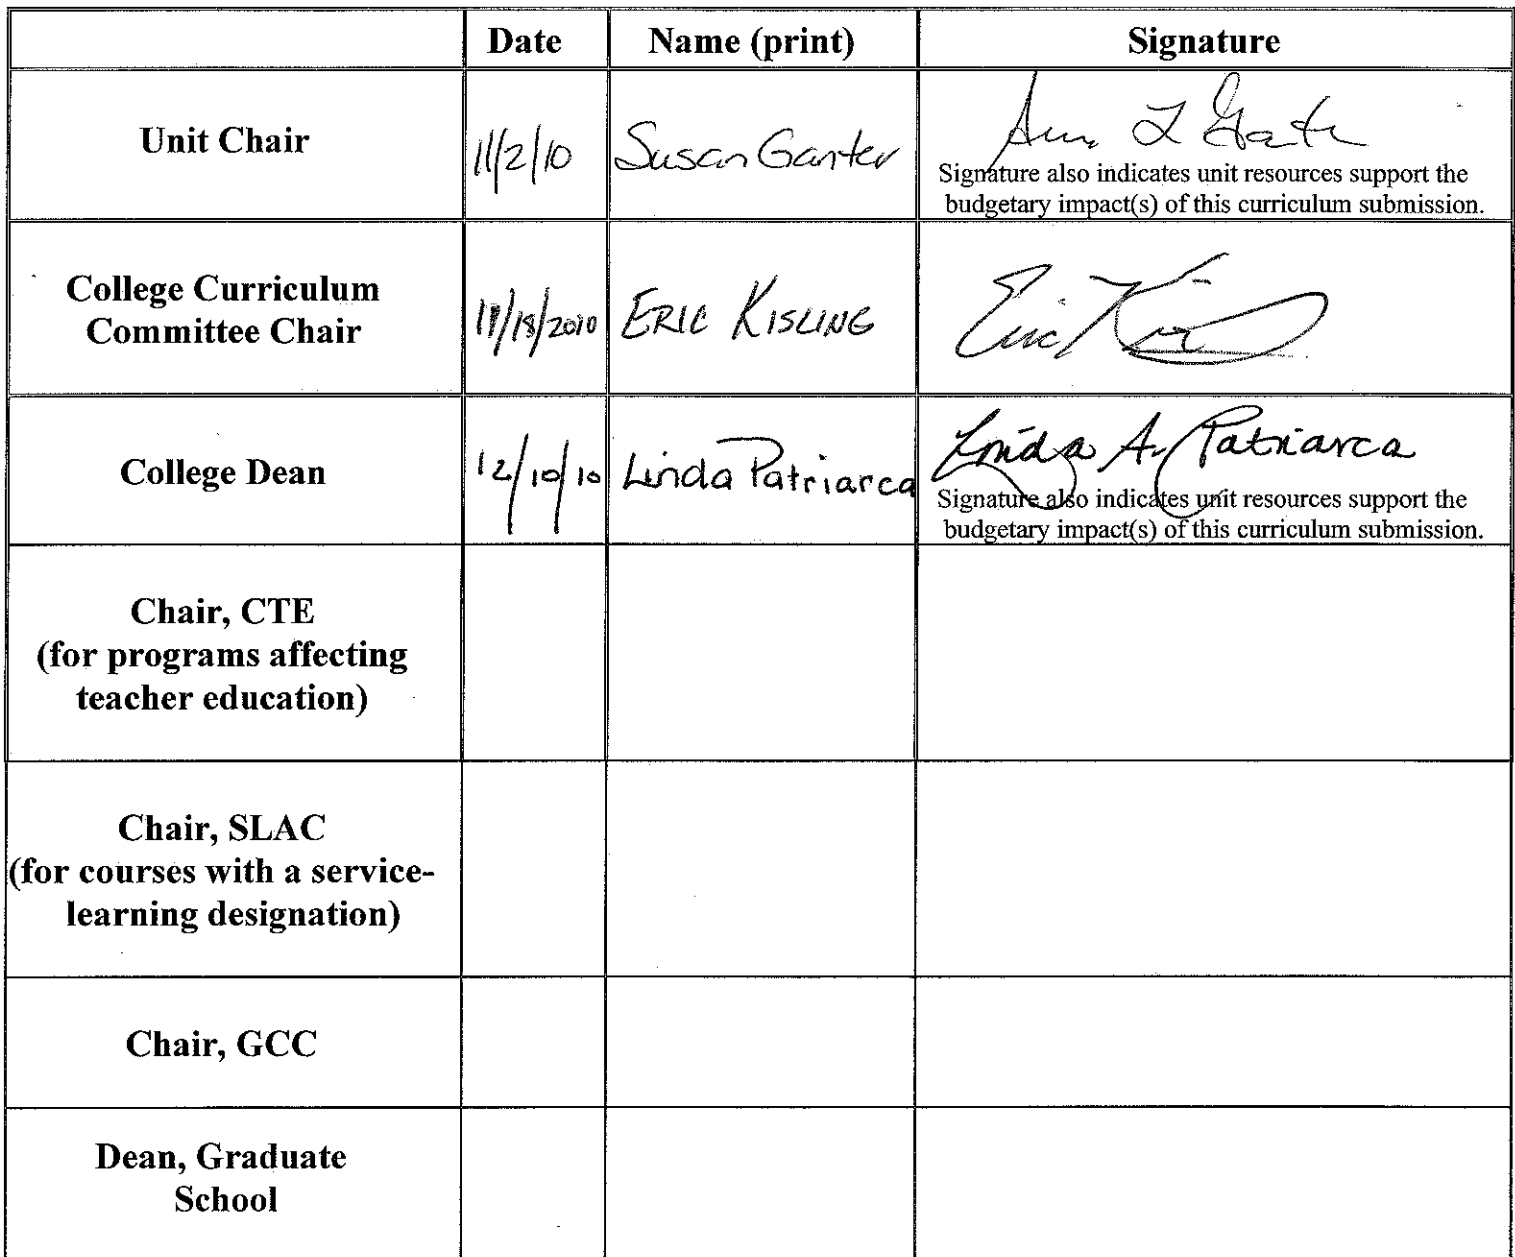 Date Name (print) Signature
Unit Chair 11/2/10 Susan Ganter
Signature also indicates unit resources support the
budgetary impact(s) of this curriculum submission.
College Curriculum
Committee Chair 11/18/2010 ERIC KISLING Eric
College Dean 12/10/10 Linda Patriarca Linda A. Patriarca
Signature also indicates unit resources support the
budgetary impact(s) of this curriculum submission.
Chair, CTE
(for programs affecting
teacher education)
Chair, SLAC
(for courses with a service-
learning designation)
Chair, GCC
Dean, Graduate
School